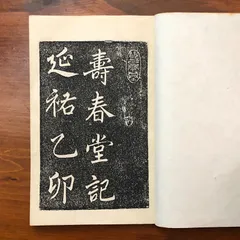 壽春堂記
延祐乙卯